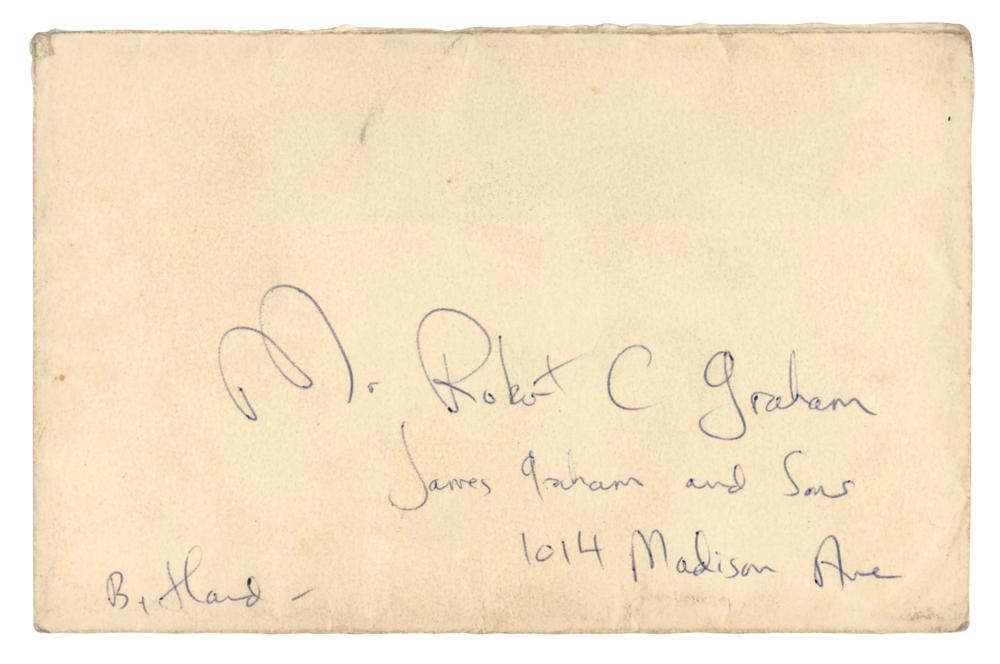 Mr. Robert C Graham
James Graham and Sons
1014 Madison Ave
By Hand -